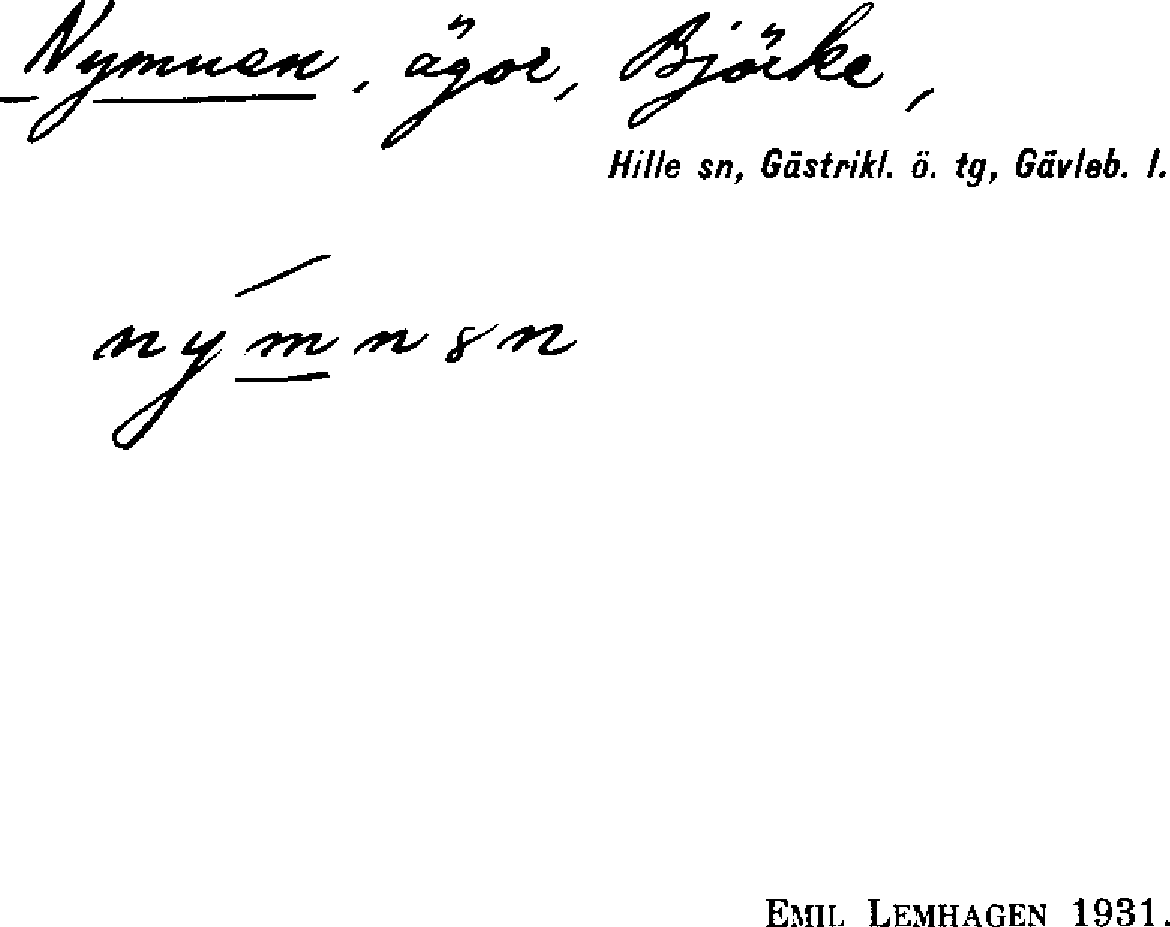 Nymuen, ägor, Björke,
Hille sn, Gästrikl. ö. tg, Gävleb. l.
EMIL LEMHAGEN 1931.